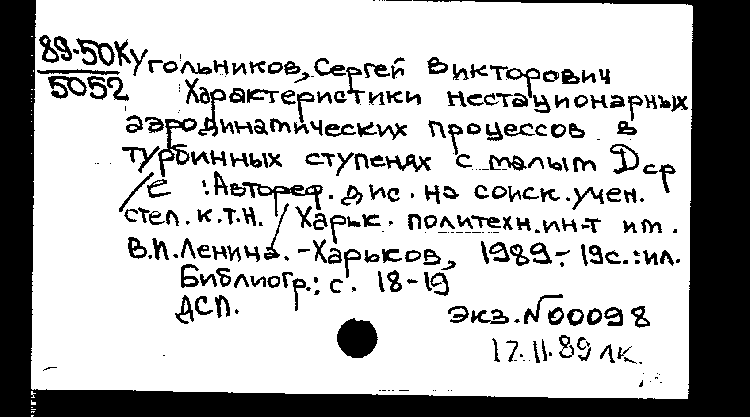 89-50К Угольников, Сергей Викторович
5052 Характеристики нестационарных
аэродинамических процессов в
турбинных ступенях с малым Dср
/e : Автореф. дис. на соиск. учен.
степ. к.т.н. / Харьк. политехн. ин-т им.
В.И.Ленина. - Харьков, 1989. - 19с.: ил.
Библиогр.: с. 18-19
ДСП.
Экз. № 00098
17.11.89 лк.